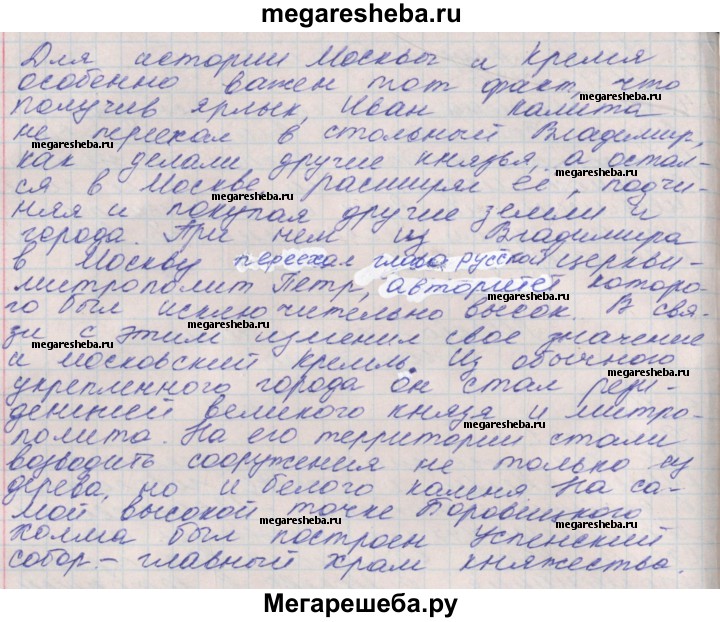 megaresheba.ru
Для истории Москвы и Кремля
особенно важен тот факт, что
megaresheba.ru
получив ярлык, Иван Калита
megaresheba.ru
не переехал в стольный Владимир,
megaresheba.ru
как делали другие князья, а остал-
megaresheba.ru
ся в Москве, расширяя её, подчи-
megaresheba.ru
няя и покупая другие земли и
города. При нем из Владимира
megaresheba.ru
в Москву переехал глава русской церкви -
митрополит Петр, авторитет которо-
megaresheba.ru
го был исключительно высок. В свя-
megaresheba.ru
зи с этим изменил свое значение
megaresheba.ru
и московский Кремль. Из обычного
megaresheba.ru
укрепленного города он стал рези-
денцией великого князя и митро-
megaresheba.ru
полита. На его территории стали
megaresheba.ru
возводить сооружения не только из
megaresheba.ru
дерева, но и белого камня. На са-
мой высокой точке Боровицкого
megaresheba.ru
холма был построен Успенский
megaresheba.ru
собор - главный храм княжества.
Мегарешеба.ру